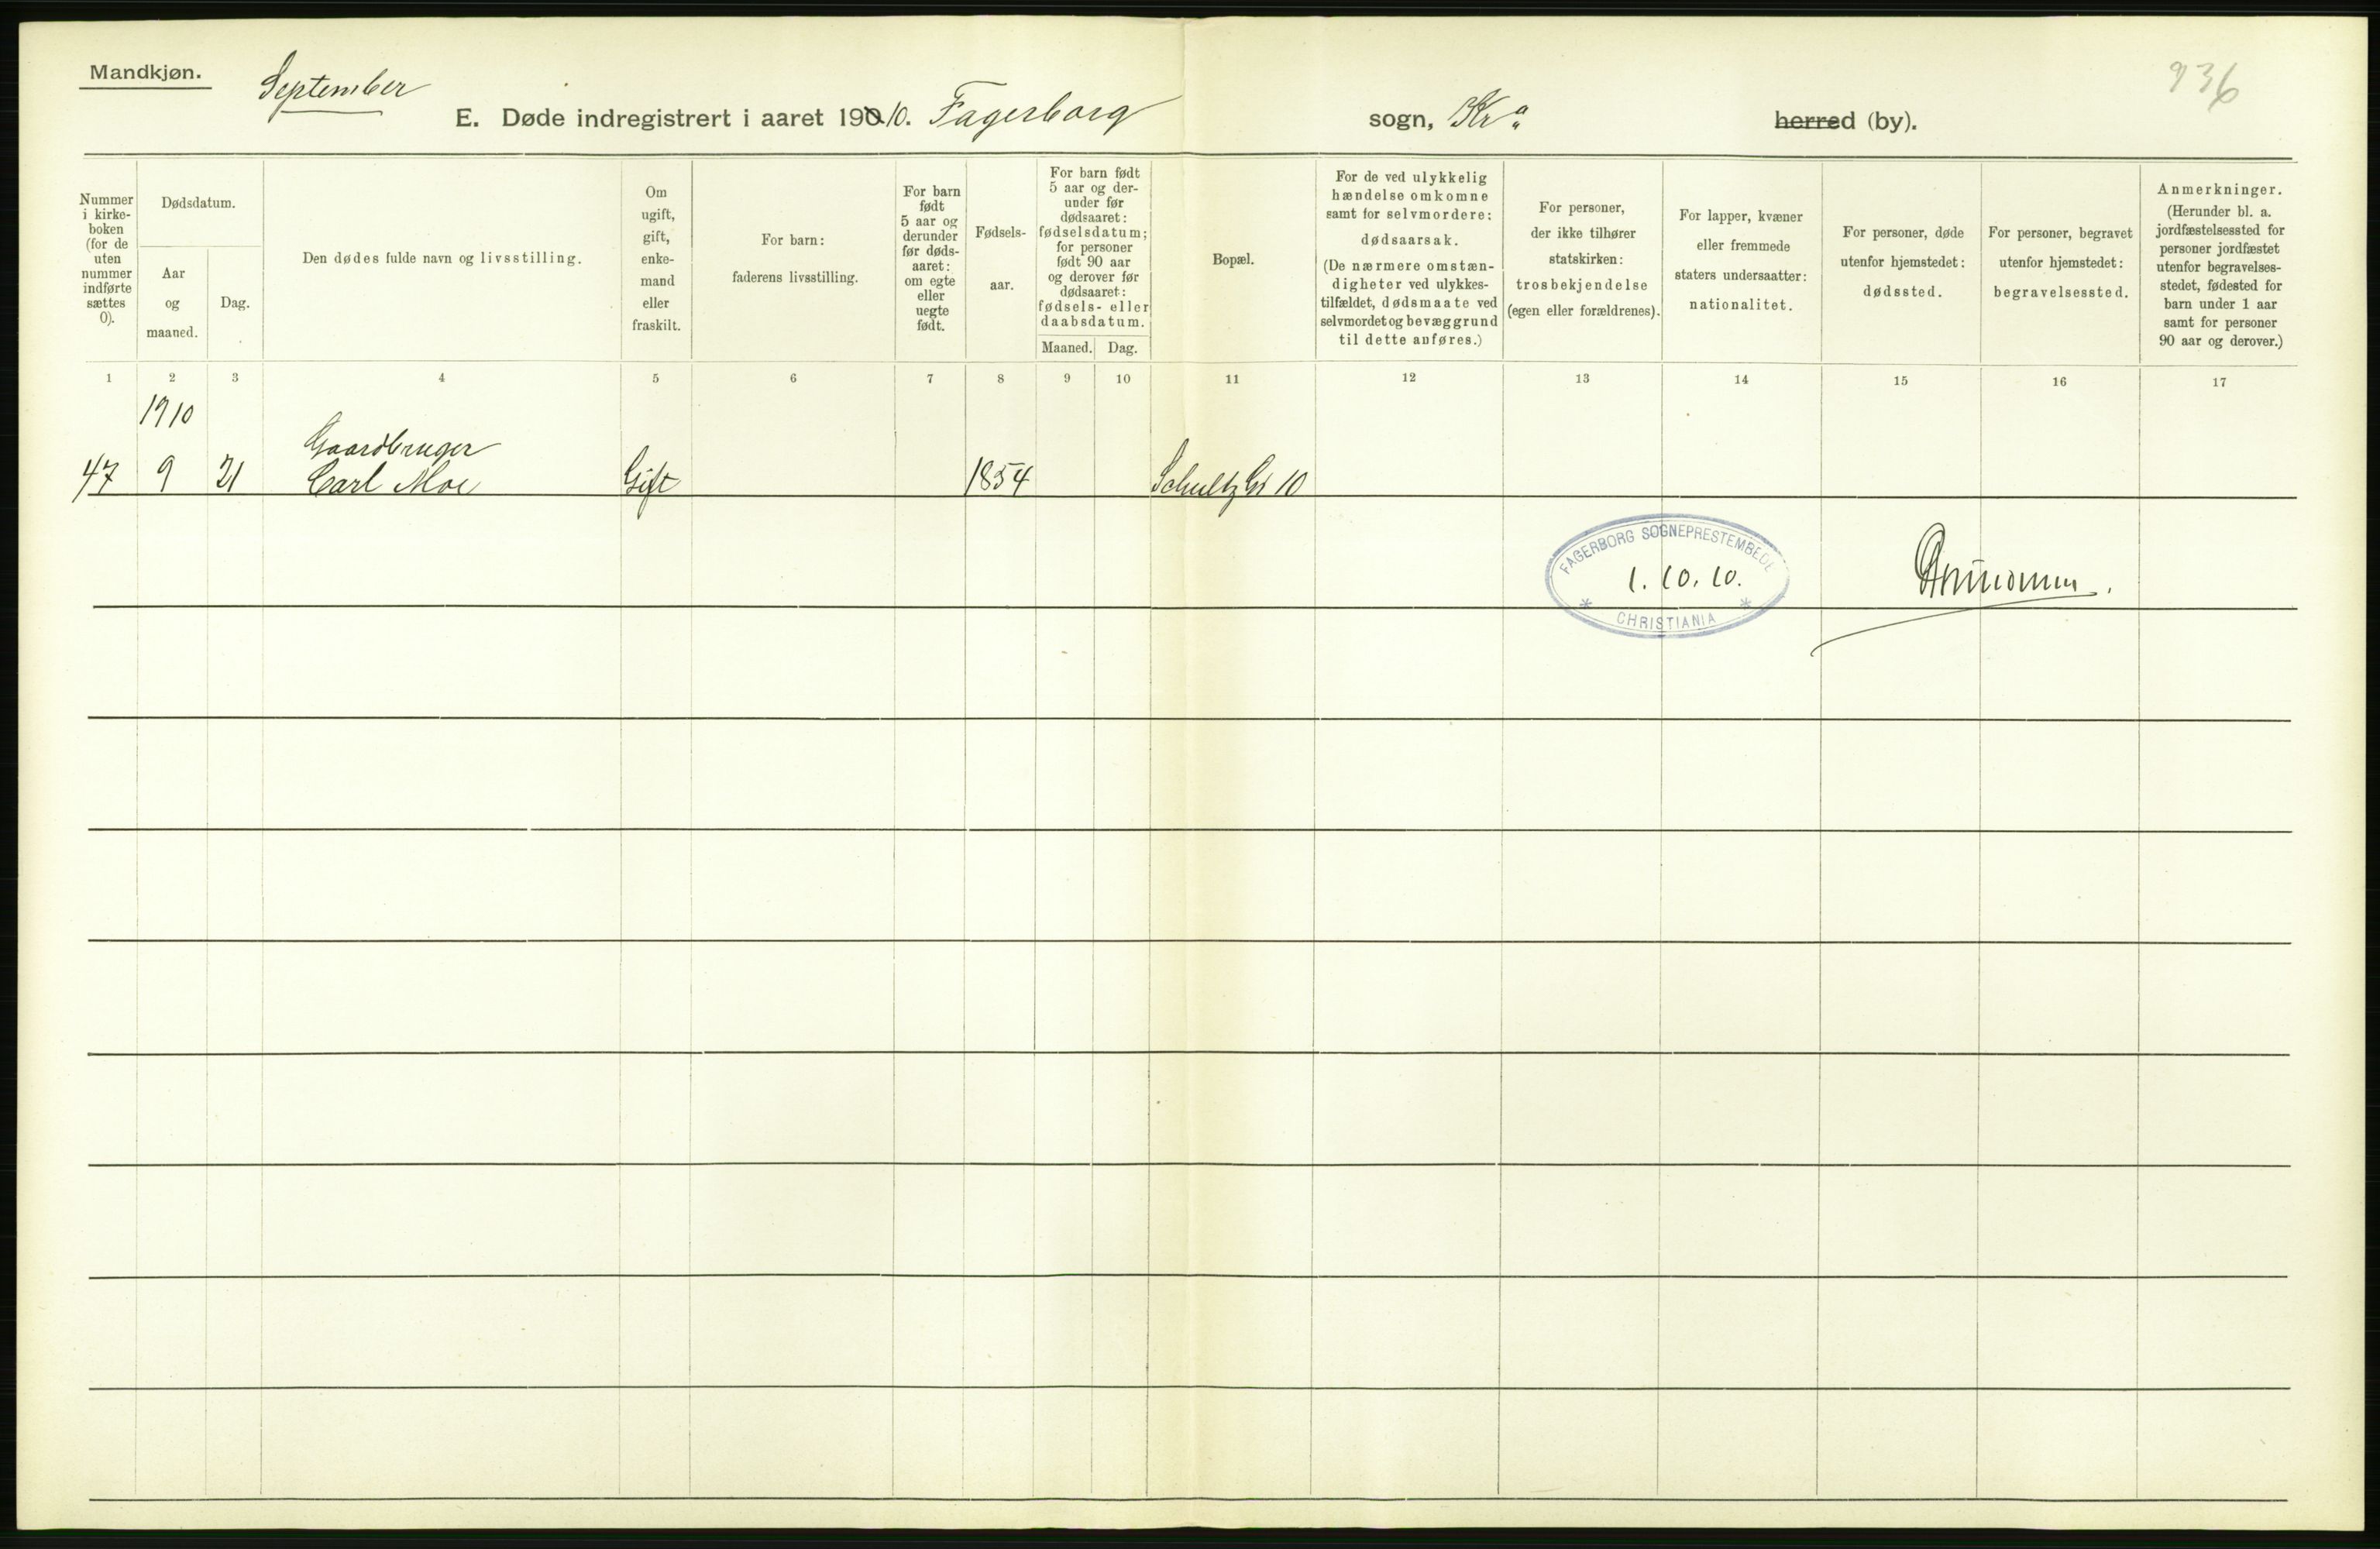 Mandkjøn.
September
936
E. Døde indregistrert i aaret 1910. Fagerborg sogn, Kra herred (by).
Nummer
i kirke-
boken
(for de
uten
nummer
indførte
sættes
0).
Dødsdatum.
Aar
og
maaned.
Dag.
Den dødes fulde navn og livsstilling.
Om
ugift,
gift,
enke-
mand
eller
fraskilt.
For barn:
faderens livsstilling.
For barn
født
5 aar og
derunder
før døds-
aaret:
om egte
eller
uegte
født.
Fødsels-
aar.
For barn født
5 aar og der-
under før
dødsaaret:
fødselsdatum;
for personer
født 90 aar
og derover før
dødsaaret:
fødsels- eller
daabsdatum.
Maaned. Dag.
Bopæl.
For de ved ulykkelig
hændelse omkomne
samt for selvmordere:
dødsaarsak.
(De nærmere omstæn-
digheter ved ulykkes-
tilfældet, dødsmaate ved
selvmordet og bevæggrund
til dette anføres.)
For personer,
der ikke tilhører
statskirken:
trosbekjendelse
(egen eller forældrenes).
For lapper, kvæner
eller fremmede
staters undersaatter:
nationalitet.
For personer, døde
utenfor hjemstedet:
dødssted.
For personer, begravet
utenfor hjemstedet:
begravelsessted.
Anmerkninger.
(Herunder bl. a.
jordfæstelsessted for
personer jordfæstet
utenfor begravelses-
stedet, fødested for
barn under 1 aar
samt for personer
90 aar og derover.)
1 2 3 4 5 6 7 8 9 10 11 12 13 14 15 16 17
1910
Gaardbruger
47 9 21 Carl Moe Gift 1854 Schultz Gt 10
FAGERBORG SOGNEPRESTEMBEDE
1. 10. 10.
CHRISTIANIA